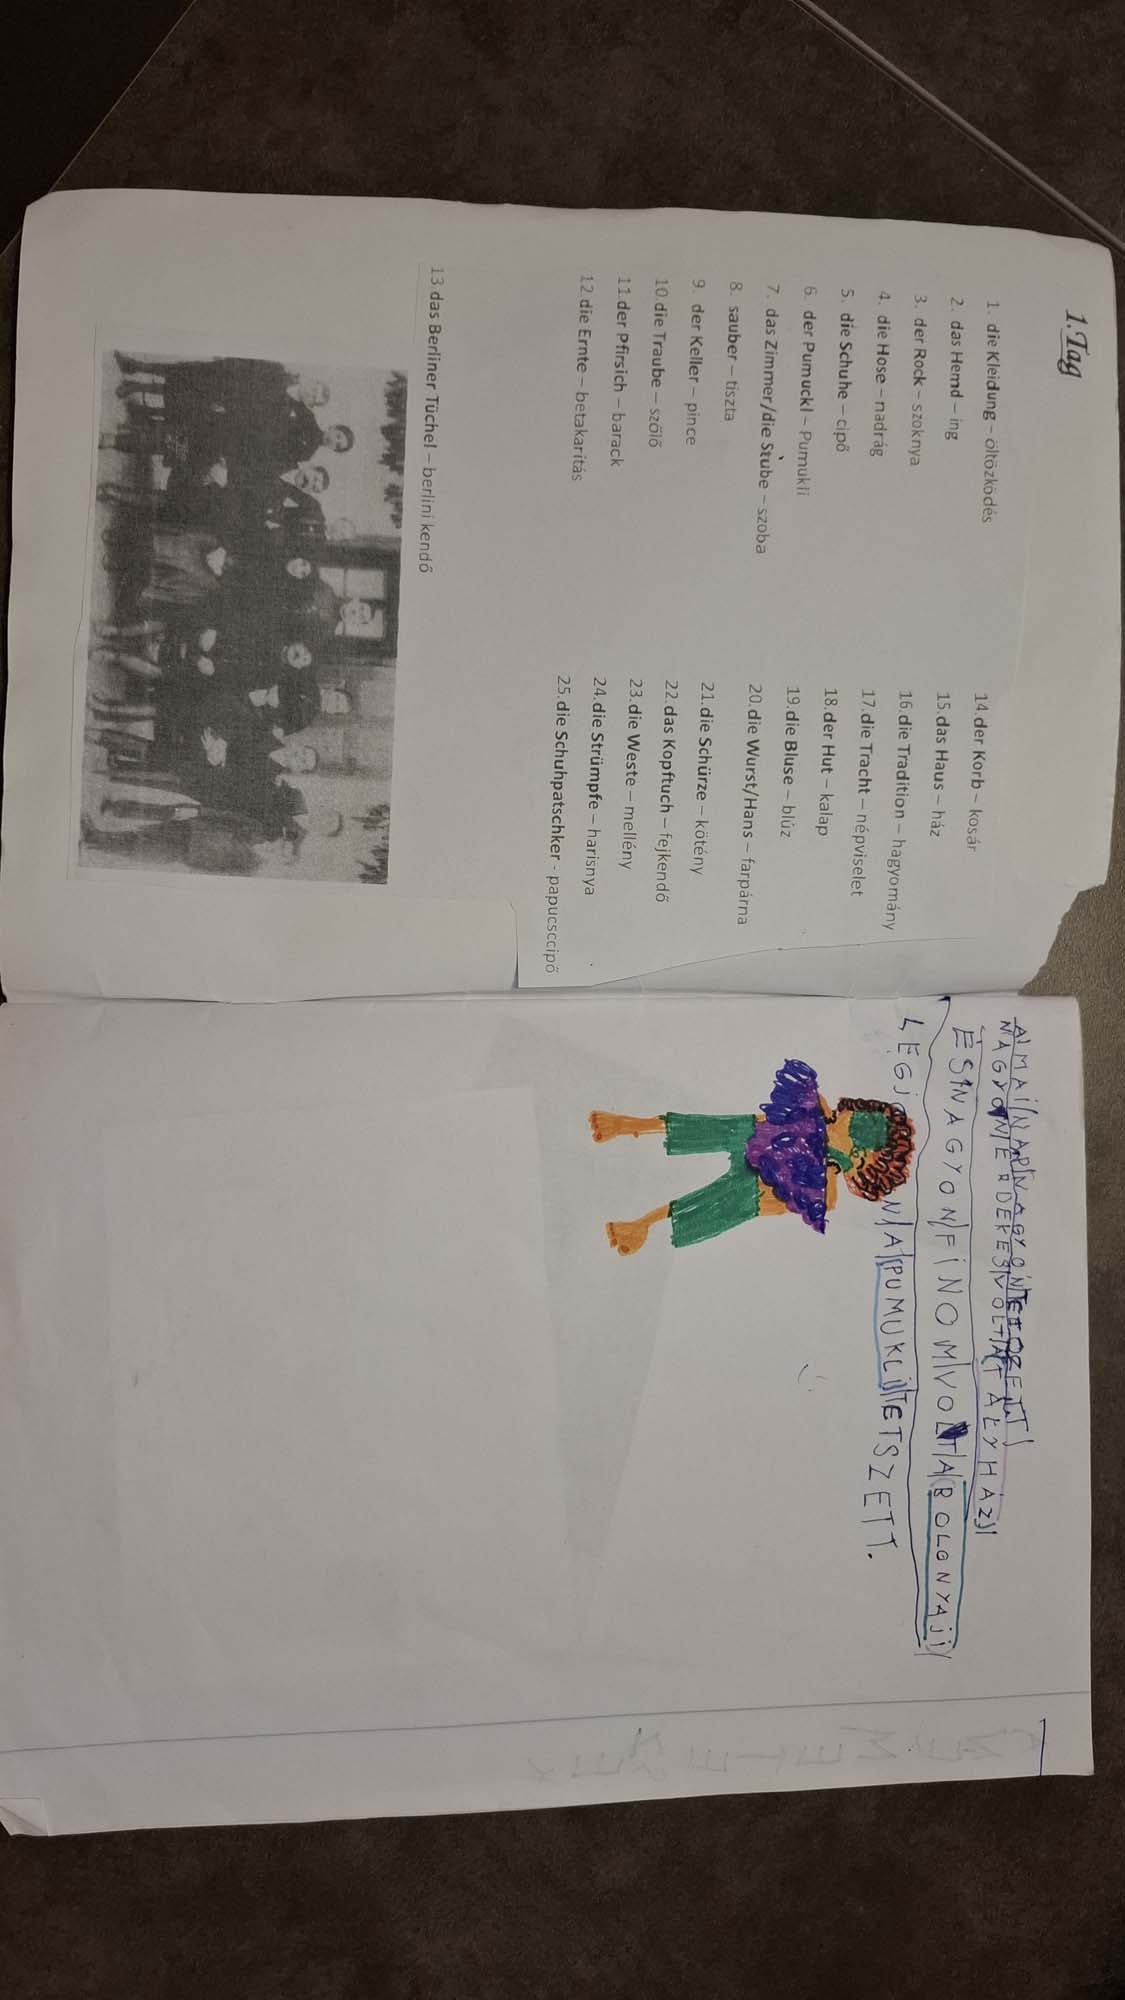 1. Tag
1. die Kleidung – öltözködés
2. das Hemd – ing
3. der Rock – szoknya
4. die Hose – nadrág
5. die Schuhe – cipő
6. der Pumuckl – Pumukli
7. das Zimmer/die Stube – szoba
8. sauber – tiszta
9. der Keller – pince
10. die Traube – szőlő
11. der Pfirsich – barack
12. die Ernte – betakarítás
13. das Berliner Tüchel – berlini kendő
14. der Korb – kosár
15. das Haus – ház
16. die Tradition – hagyomány
17. die Tracht – népviselet
18. der Hut – kalap
19. die Bluse – blúz
20. die Wurst/Hans – farpárna
21. die Schürze – kötény
22. das Kopftuch – fejkendő
23. die Weste – mellény
24. die Strümpfe – harisnya
25. die Schuhpatschker - papucsccipő
A/MAI/NAP/NAGYON/
NAGYON/ÉRDEKES/VOLT/A/TÁLYHÁZ/
ÉS/NAGYON/FINOM/VOLT/A/BOLONYAJI/
N/A/PUMUKLI/TETSZETT.